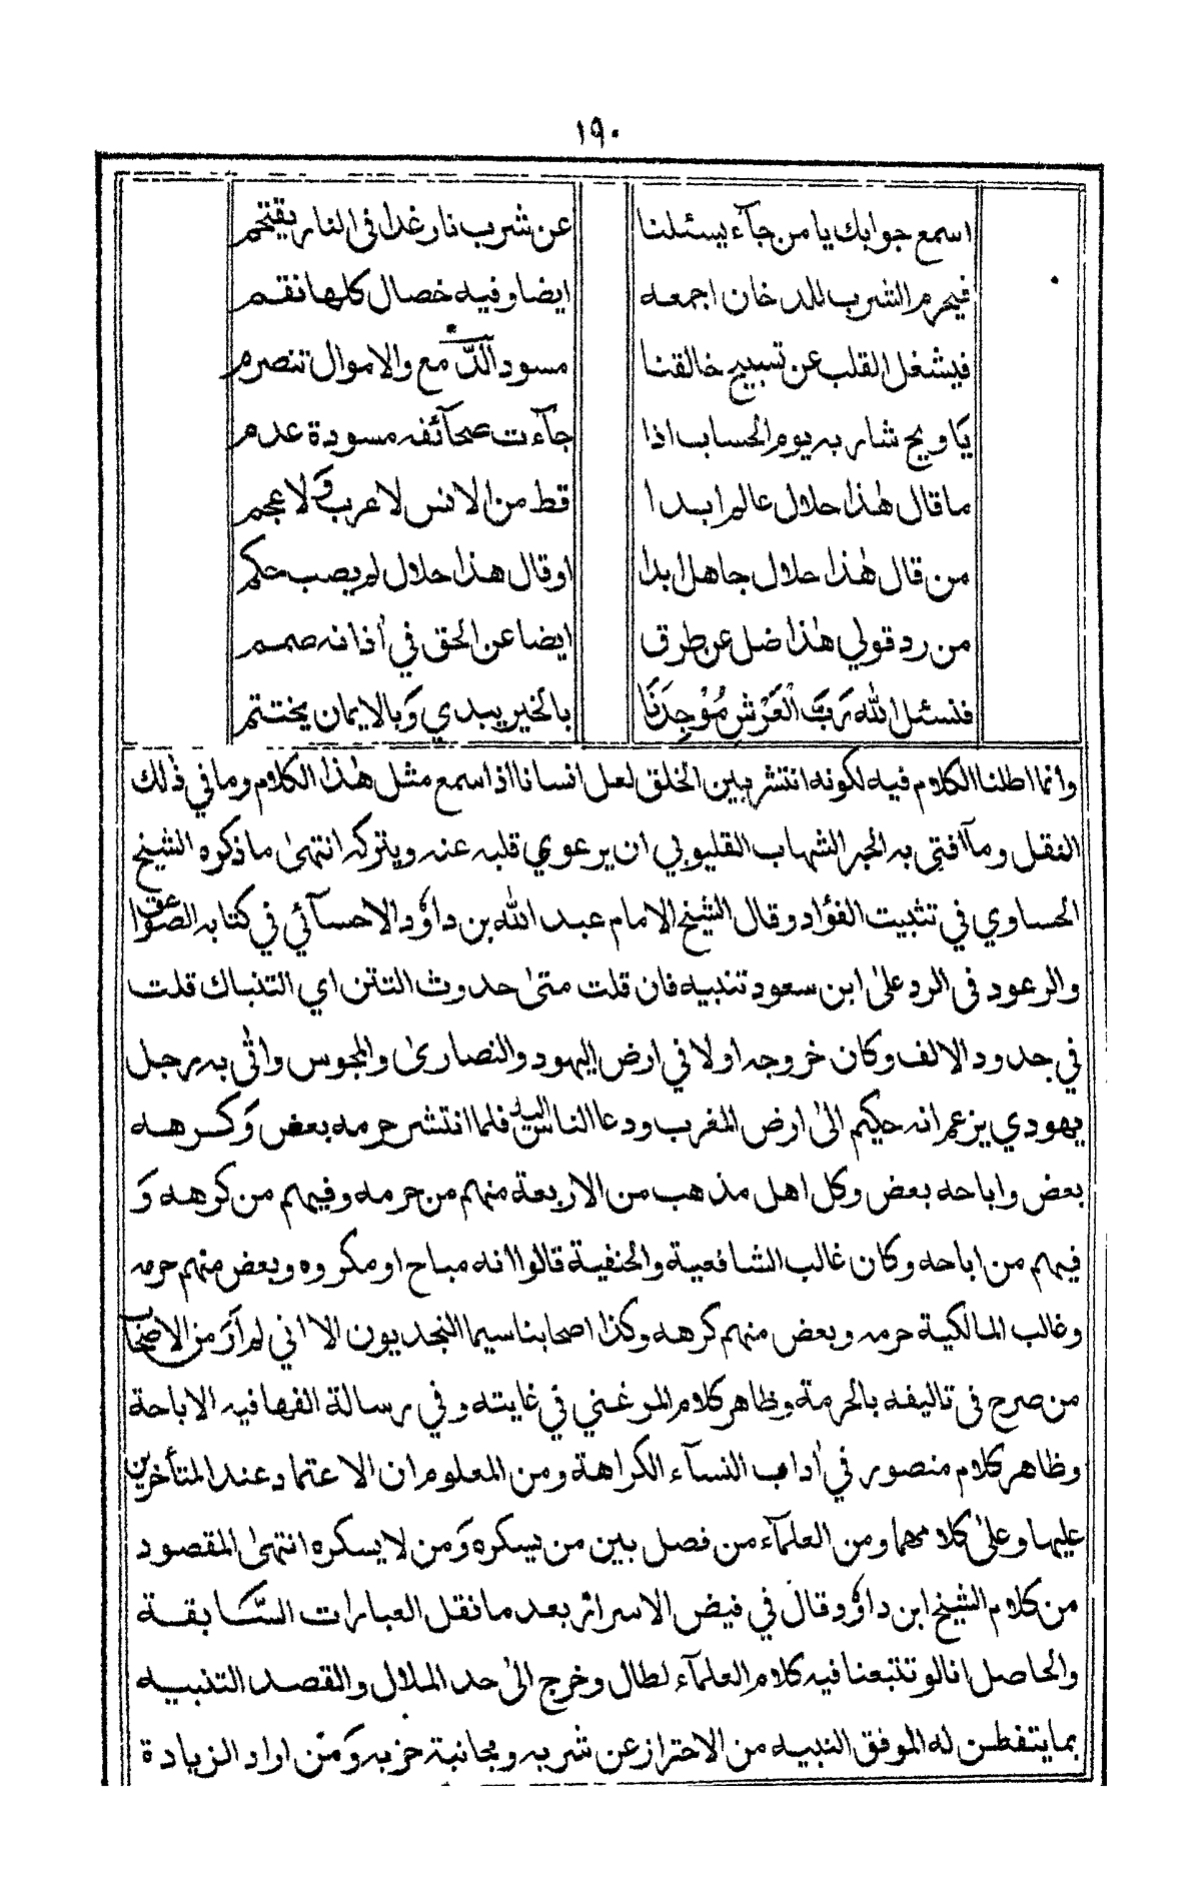 ١٩٠
اسمع جوابك يا من جآء يسئلنا عن شرب نار غدا فى النار يقتحم
فيحرم الشرب للدخان اجمعه ايضا وفيه خصال كلها نقم
فيشغل القلب عن تسبيح خالقنا مسود الدّمع والاموال تنصرم
يا ويح شاربه يوم الحساب اذا جآءت صحآئفه مسودة عدم
ما قال هٰذا حلال عالم ابدا قط من الانس لا عرب وَلا عجم
من قال هٰذا حلال جاهل ابدا او قال هذا حلال لم يصب حكم
من رد قولي هٰذا ضل عن طرق ايضا عن الحق في اٰذانه صمم
فنسئل الله رَبَّ الْعَرْشِ مُوْجِدَنَا بالخير يبدي وَبالايمان يختتم
وانما اطلنا الكلام فيه لكونه انتشر بين الخلق لعل انسانا اذا سمع مثل هٰذا الكلام وما في ذٰلك
النقل ومآ افتى به الحبر الشهاب القليوبي ان يرعوي قلبه عنه ويتركه انتهىٰ ما ذكره الشيخ
الحساوي في تثبيت الفؤاد وقال الشيخ الامام عبد الله بن داوٗد الاحسآئي في كتابه الصواعق
والرعود فى الرد علىٰ ابن سعود تنبيه فان قلت متىٰ حدوث التتن اي التنباك قلت
في حدود الالف وكان خروجه اولا في ارض اليهود والنصارىٰ والمجوس واتٰى به رجل
يهودي يزعم انه حكيم الىٰ ارض المغرب ودعا الناس اليه فلما انتشر حرمه بعض وَكرهه
بعض واباحه بعض وكل اهل مذهب من الاربعة منهم من حرمه وفيهم من كرهه وَ
فيهم من اباحه وكان غالب الشافعية والحنفية قالوا انه مباح او مكروه وبعض منهم حرمه
وغالب المالكية حرمه وبعض منهم كرهه وكذا اصحابنا سيما النجديون الا اني لم اَرَ من الاصحاب
من صرح فى تاليفه بالحرمة وظاهر كلام المرغني في غايته وفي رسالة الفها فيه الاباحة
وظاهر كلام منصور في اٰداب النسآء الكراهة ومن المعلوم ان الاعتماد عند المتأخرين
عليها وعلىٰ كلامهما ومن العلمآء من فصل بين من يسكره وَمن لا يسكره انتهىٰ المقصود
من كلام الشيخ ابن داوٗد وقال في فيض الاسرار بعد ما نقل العبارات السَّابقة
والحاصل انا لو تتبعنا فيه كلام العلمآء لطال وخرج الىٰ حد الملال والقصد التنبيه
بما يتفطن له الموفق النبيه من الاحتراز عن شربه ومجانبة حزبه وَمَن اراد الزيادة